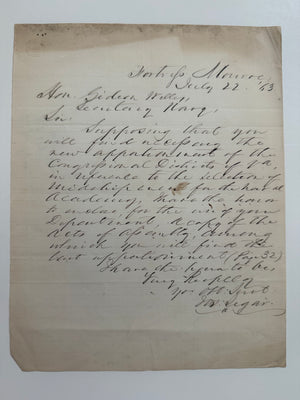 Fortress Monroe,
July 22 '63
Hon. Gideon Welles,
Secretary Navy,
Sir,
Supposing that you
will find necessary the
new apportionment of the
Congressional Districts of Va.
in reference to the selection of
midshipmen for the Naval
Academy, I have the honor
to enclose for the use of your
Department a copy of the
Acts of Assembly, among
which you will find the
last apportionment (Page 32)
I have the honor to be
Very Respectfly
Yor Obt Servt
Jos. Segar.